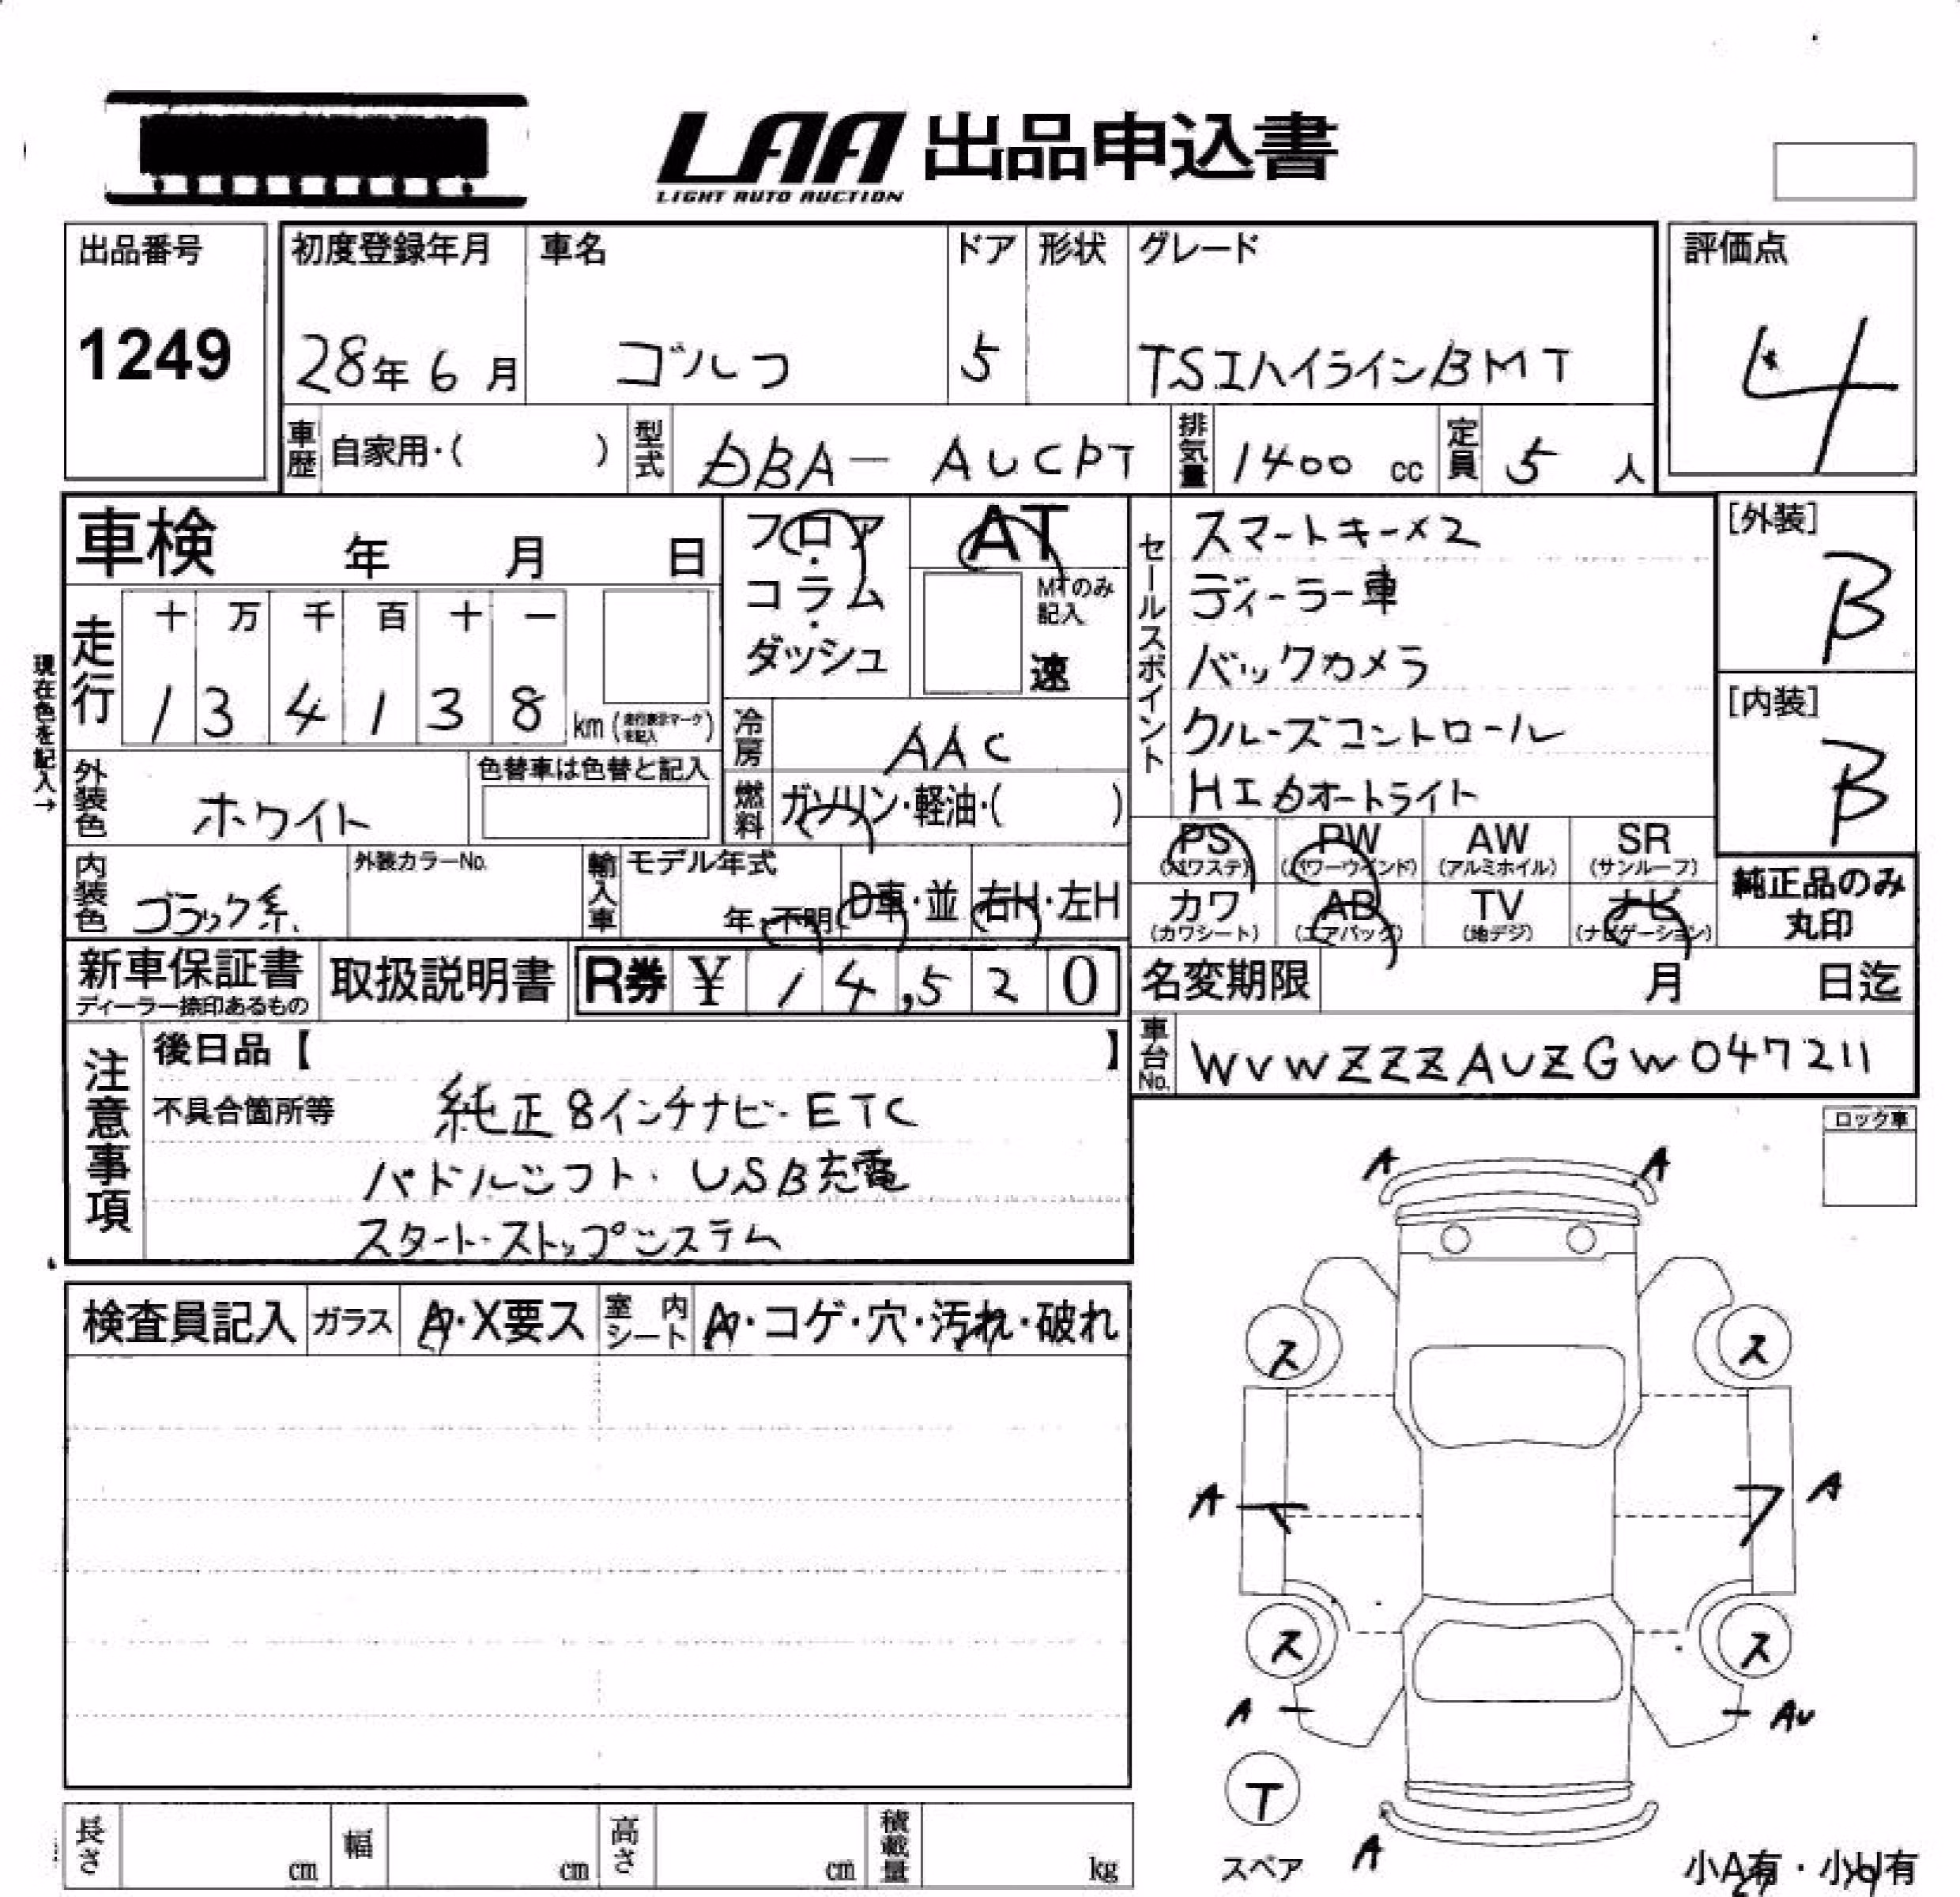 LAA 出品申込書
LIGHT AUTO AUCTION
出品番号
1249
初度登録年月
28年 6月
車名
ゴルフ
ドア
5
形状
グレード
TSIハイラインBMT
評価点
4
車歴
自家用・( )
型式
DBA- AUCPT
排気量
1400 cc
定員
5 人
車検 年 月 日
フロア・コラム・ダッシュ
AT
MTのみ記入
速
セールスポイント
スマートキー×2
ディーラー車
バックカメラ
クルーズコントロール
HIDオートライト
[外装]
B
[内装]
B
現在色を記入→
走行
十 万 千 百 十 一
1 3 4 1 3 8 km
冷房
AAC
外装色
ホワイト
色替車は色替と記入
燃料
ガソリン・軽油・( )
PS (パワステ)
PW (パワーウインド)
AW (アルミホイル)
SR (サンルーフ)
カワ (カワシート)
AB (エアバッグ)
TV (地デジ)
ナビ (ナビゲーション)
純正品のみ丸印
内装色
ブラック系
外装カラーNo.
輸入車
モデル年式
年・不明
D車・並
右H・左H
新車保証書
ディーラー捺印あるもの
取扱説明書
R券 ¥ 14,520
名変期限 月 日迄
車台No.
WVWZZZAUZGW047211
注意事項
後日品【 】
不具合箇所等
純正8インチナビ・ETC
パドルシフト・USB充電
スタート・ストップシステム
ロック車
検査員記入
ガラス
A・X要ス
室内シート
A・コゲ・穴・汚れ・破れ
A A
ス ス
A A
ス ス
A AU
T
スペア
A
小A有・小U有
長さ cm
幅 cm
高さ cm
積載量 kg